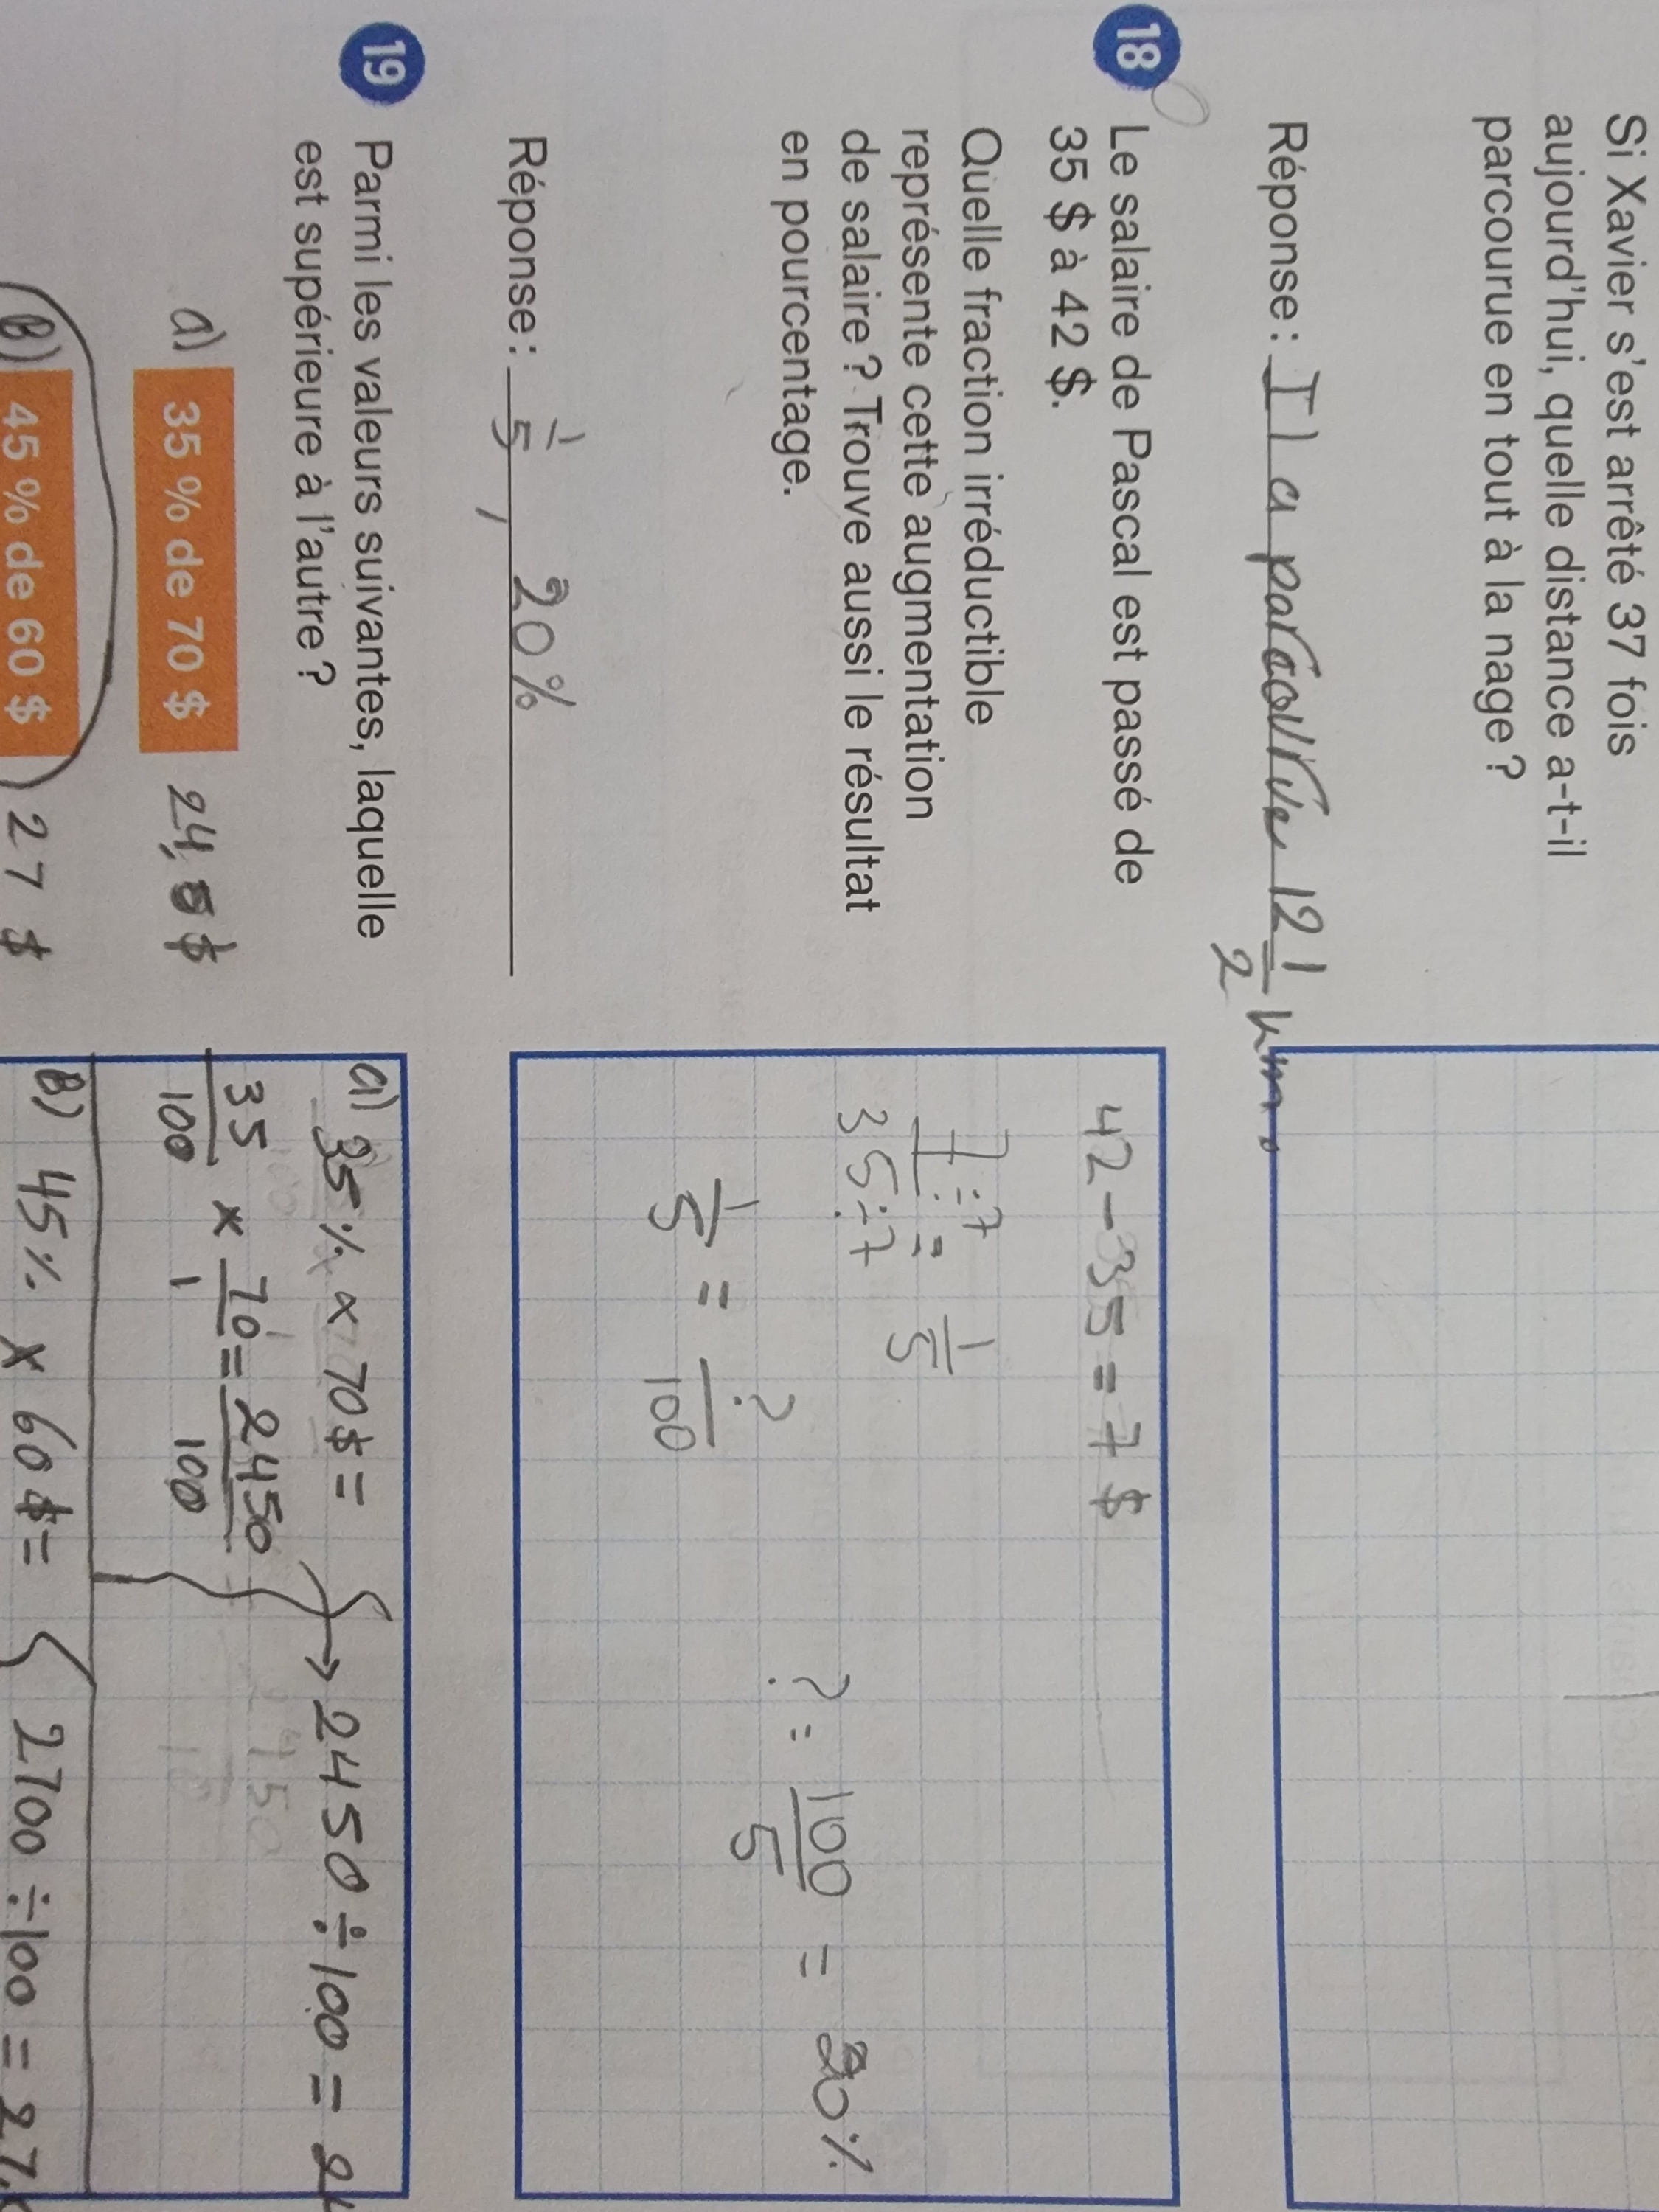 Si Xavier s'est arrêté 37 fois
aujourd'hui, quelle distance a-t-il
parcourue en tout à la nage ?
Réponse : Il a parcourue 12 1/2 km.
18 Le salaire de Pascal est passé de
35 $ à 42 $.
Quelle fraction irréductible
représente cette augmentation
de salaire ? Trouve aussi le résultat
en pourcentage.
Réponse : 1/5, 20%
42-35=7 $
7:7/35:7 = 1/5
1/5 = ?/100
? = 100/5 = 20%
19 Parmi les valeurs suivantes, laquelle
est supérieure à l'autre ?
a) 35 % de 70 $ 24,5 $
B) 45 % de 60 $ 27 $
a) 35% x 70 $ =
35/100 x 70/1 = 2450/100
→ 2450 ÷ 100 =
B) 45% x 60 $ =
2700 ÷ 100 = 27